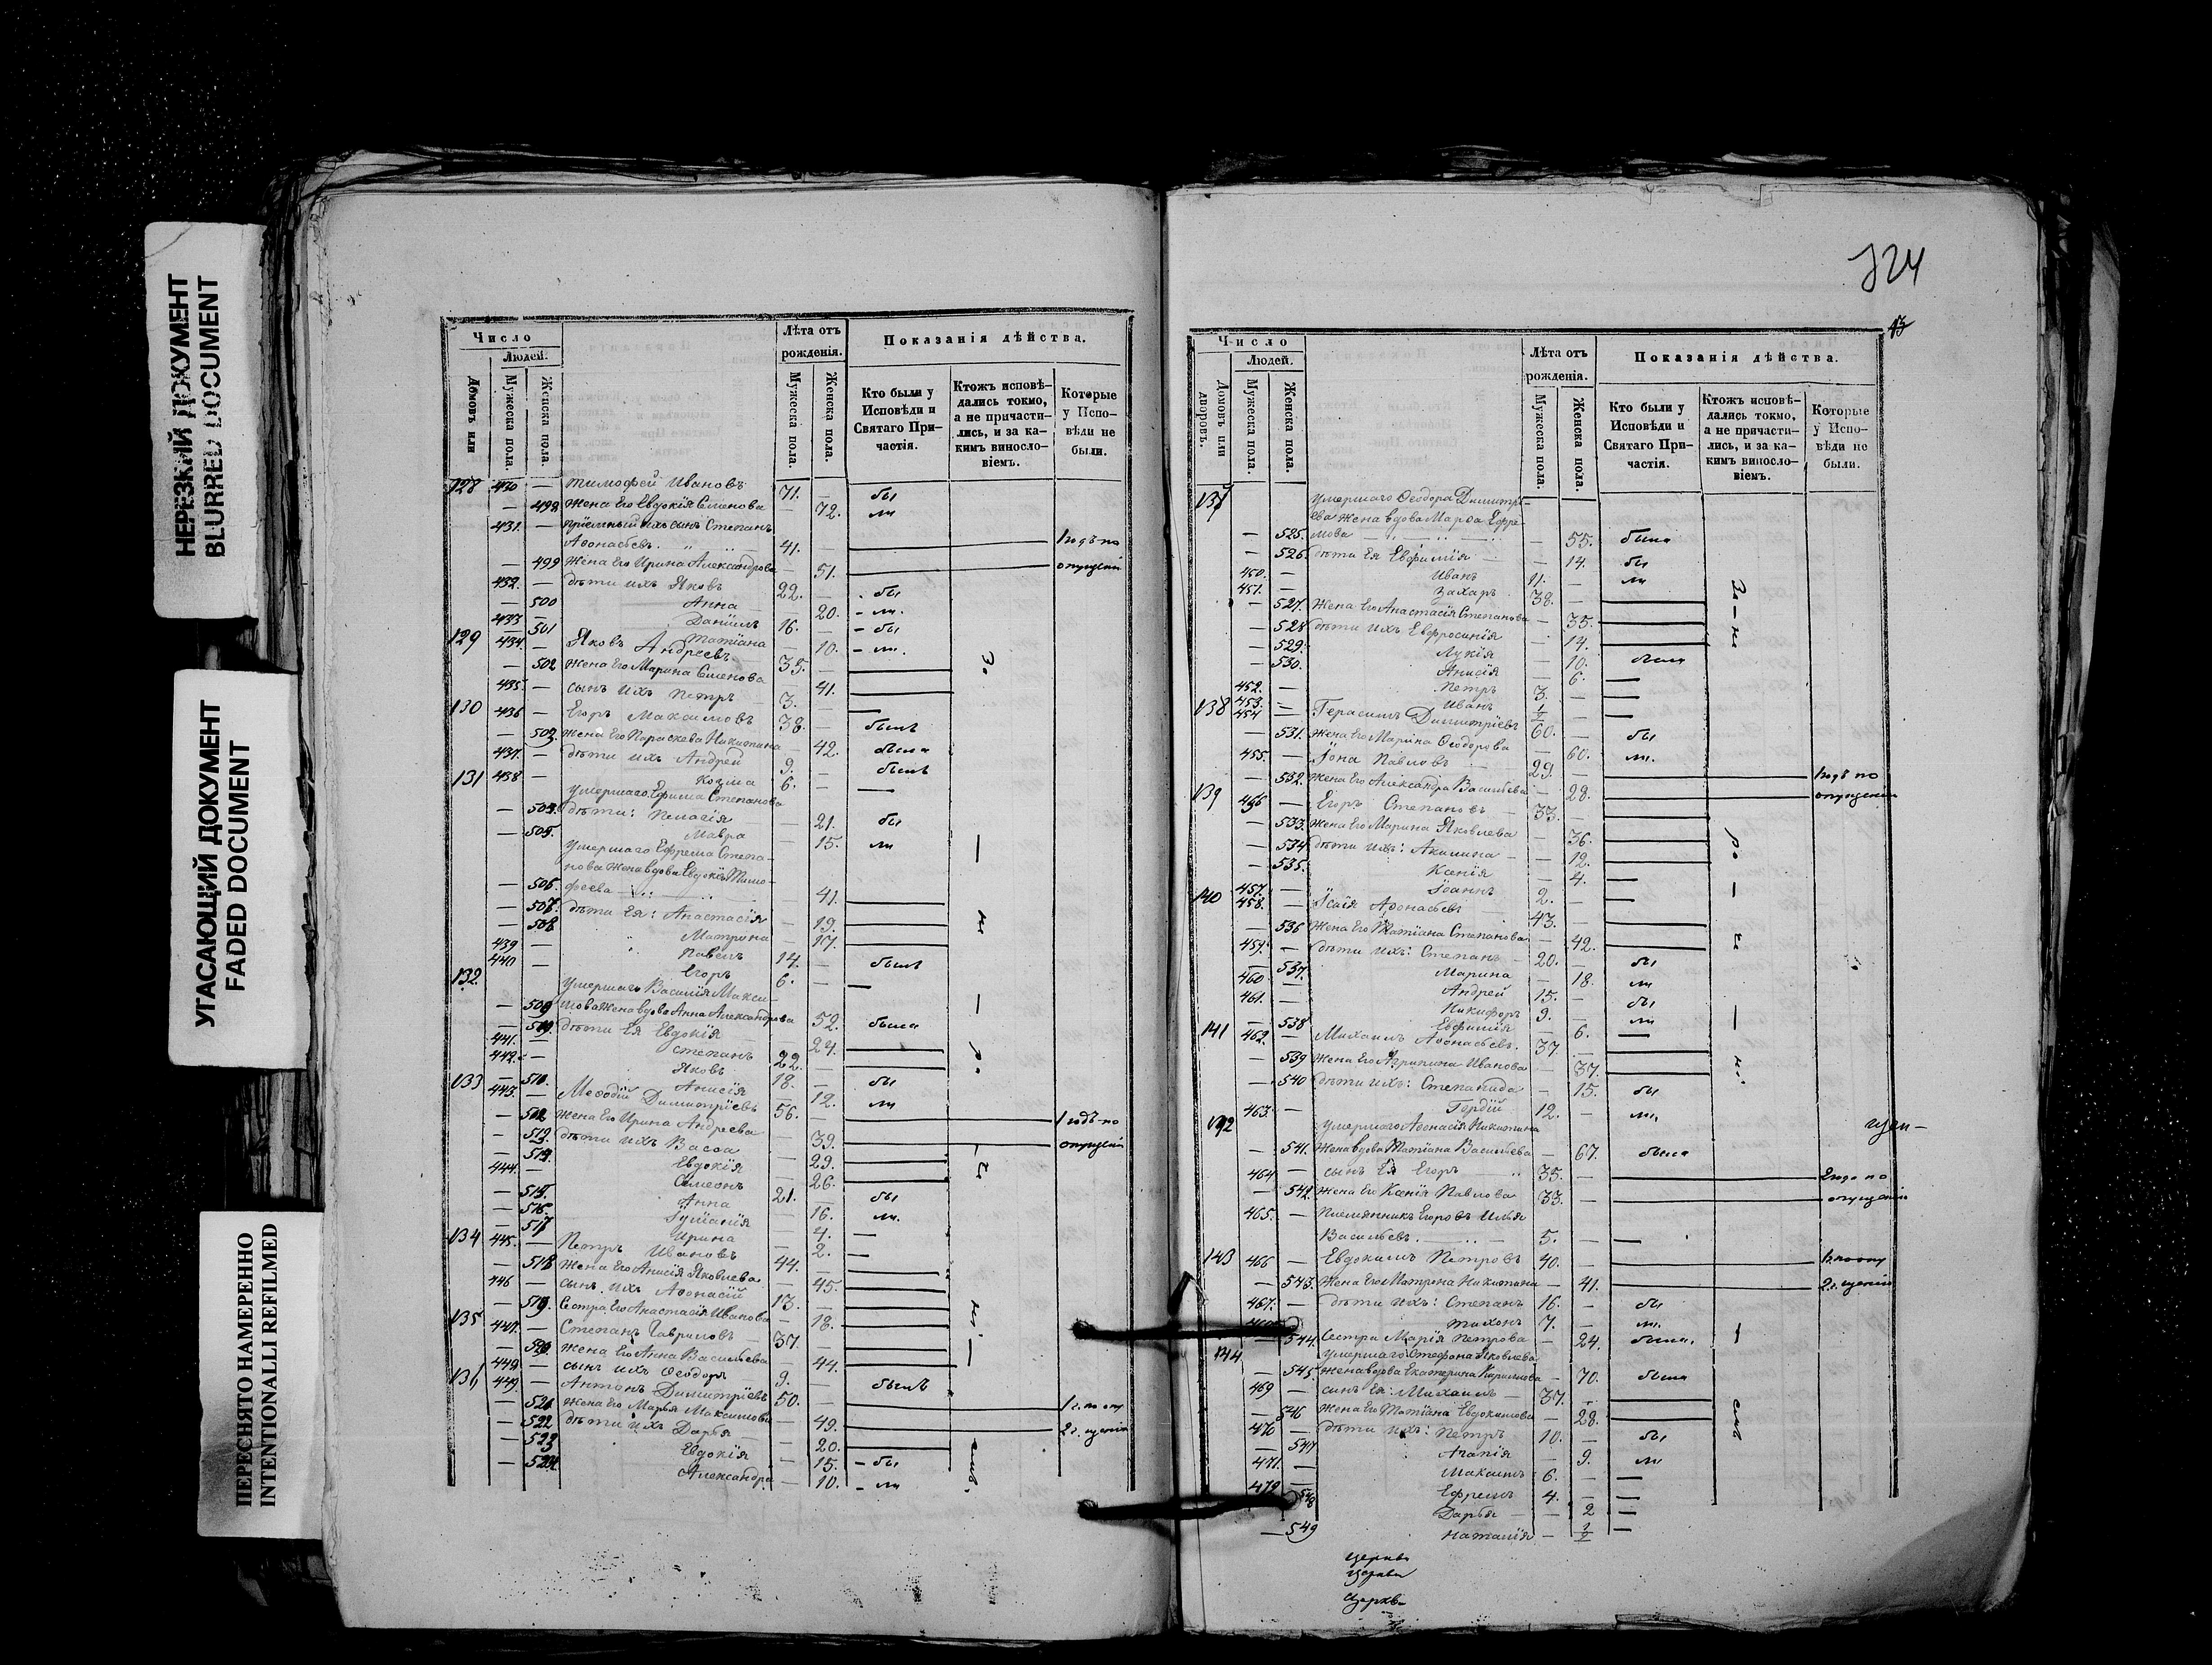 НЕРЕЗКИЙ ДОКУМЕНТ
BLURRED DOCUMENT
УГАСАЮЩИЙ ДОКУМЕНТ
FADED DOCUMENT
ПЕРЕСНЯТО НАМЕРЕННО
INTENTIONALLI REFILMED
Число
Людей.
Домовъ или
Мужеска пола.
Женска пола.
Лѣта отъ рожденія.
Мужеска пола.
Женска пола.
Показанія дѣйства.
Кто были у Исповѣди и Святаго Причастія.
Ктожъ исповѣдались токмо, а не причастились, и за какимъ винословіемъ.
Которые у Исповѣди не были.
128 430 — Тимофей Ивановъ 71. — бы
— 498 Жена Его Евдокія Сименова — 72. ли
431. — Пріемный ихъ сынъ Степанъ
Аѳонасьевъ. 41. — 1 годъ по
— 499 Жена Его Ирина Александрова — 51. опущенію
432. — дѣти ихъ Яковъ 22. — бы
— 500 Анна — 20. — ли.
433 — Даніилъ 16. — бы
— 501 Татіана — 10. — ли.
129 434. — Яковъ Андреевъ 35. —
— 502 Жена Его Марина Сименова — 41.
435. — сынъ ихъ Петръ 3. —
130 436 — Егоръ Максимовъ 38. — былъ
— 503. Жена Его Параскева Никитина — 42. была
437. — дѣти ихъ Андрей 9. — былъ
438 — Козма 6. — —
131 Умершаго Ефима Степанова
— 504. дѣти: Пелагія — 21. бы
— 505. Мавра — 15. ли
Умершаго Ефрема Степа-
нова жена вдова Евдокія Тимо-
— 506. феева — 41.
— 507. дѣти Ея: Анастасія — 19.
— 508 Матрона — 17.
439 — Павелъ 14. — былъ
440 — Егоръ 6. — —
132. Умершаго Василія Макси-
— 509 мова жена вдова Анна Александрова 52. была
— 510. дѣти Ея Евдокія — 24.
441. — Степанъ 22. —
442. — Яковъ 18. — бы
— 511. Анисія — 12. ли
133 443. — Меѳодій Димитріевъ 56. — 1 годъ по
— 512 Жена Его Ирина Андреева — 39. опущенію
— 513. дѣти ихъ Васса — 29.
— 514. Евдокія — 26.
444. — Симеонъ 21. — бы
— 515. Анна — 16. ли.
— 516. Іуліанія — 4. —
— 517 Ирина — 2. —
134 445. — Петръ Ивановъ 44. —
— 518 Жена Его Анисія Яковлева — 45.
446 — сынъ ихъ Аѳонасій 13. —
— 519. Сестра Его Анастасія Иванова — 18.
135 447. — Степанъ Гавриловъ 37. —
— 520. Жена Его Анна Васильева — 44.
448. — сынъ ихъ Ѳеодоръ 9. — былъ
136 449. — Антонъ Димитріевъ 50. — 1 г. по оп
— 521. Жена Его Марья Максимова — 49. 2 г. ущенію
— 522 дѣти ихъ Дарья — 20.
— 523 Евдокія — 15. — бы
— 524 Александра — 10. — ли
324
Число
Людей.
Домовъ или дворовъ.
Мужеска пола.
Женска пола.
Лѣта отъ рожденія.
Мужеска пола.
Женска пола.
Показанія дѣйства.
Кто были у Исповѣди и Святаго Причастія.
Ктожъ исповѣдались токмо, а не причастились, и за какимъ винословіемъ.
Которые у Исповѣди не были.
137 Умершаго Ѳеодора Димитрі-
ева жена вдова Марѳа Ефре-
— 525. мова — 55. была
— 526. дѣти Ея Евфимія — 14. бы
450. — Иванъ 11. — ли
451. — Захаръ 38. —
— 527. Жена Его Анастасія Степанова — 35.
— 528 дѣти ихъ Евфросинія — 14.
— 529. Лукія — 10. была
— 530. Анисія — 6. —
452. — Петръ 3. —
453. — Иванъ ½ — —
138 454 — Герасимъ Димитріевъ 60. — бы
— 531. Жена Его Марина Ѳеодорова — 60. ли.
455. — Іона Павловъ 29. — 1 годъ по
— 532. Жена Его Александра Васильева — 28. опущенію
139 456 — Егоръ Степановъ 33. —
— 533. Жена Его Марина Яковлева — 36.
— 534. дѣти ихъ: Акилина — 12.
— 535. Ксенія — 4. —
457. — Іоаннъ 2. — —
140 458. — Исаія Аѳонасьевъ 43. —
— 536 Жена Его Татіана Степанова — 42.
459. — дѣти ихъ: Степанъ 20. — бы
— 537. Марина — 18. ли
460 — Андрей 15. — бы
461. — Никифоръ 9. — ли
— 538 Евфимія — 6. —
141 462. — Михаилъ Аѳонасьевъ. 37. —
— 539 Жена Его Агрипина Иванова — 37.
— 540 дѣти ихъ: Степанида — 15. бы
463. — Гордій 12. — ли.
142 Умершаго Аѳонасія Никитина
— 541. Жена вдова Татіана Васильева — 67. была
464 — сынъ Ея Егоръ 35. —
— 542. Жена Его Ксенія Павлова 33. — опущенію
465. — Племянникъ Егоровъ Илья
Васильевъ. 5. — —
143 466 — Евдокимъ Петровъ 40. — 1 г. по оп
— 543. Жена Его Матрона Никитина — 41. 2 г. ущенію
467. — дѣти ихъ: Степанъ 16. — бы
Тихонъ 7. — ли.
— 544. Сестра Марія Петрова — 24. была.
144 Умершаго Стефана Яковлева
— 545. Жена вдова Екатерина Кирилова — 70. была
469 — сынъ Ея: Михаилъ 37. —
— 546 Жена Его Татіана Евдокимова — 28.
470 — дѣти ихъ: Петръ 10. — бы
— 547 Агапія — 9. ли
471. — Максимъ 6. — —
472 — Ефремъ 4. — —
548 Дарья — 2 —
— 549 Наталія — ½ —
Церковь